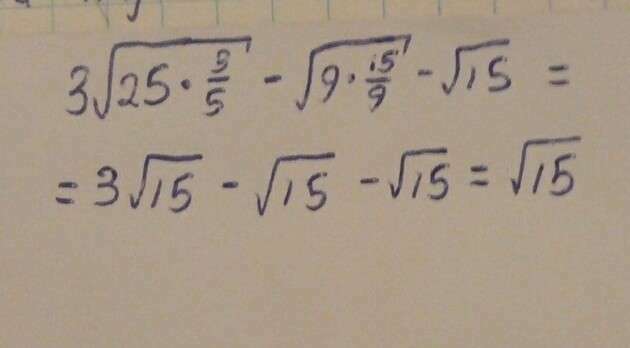 3√(25 · 3/5) - √(9 · 15/9) - √15 =
= 3√15 - √15 - √15 = √15